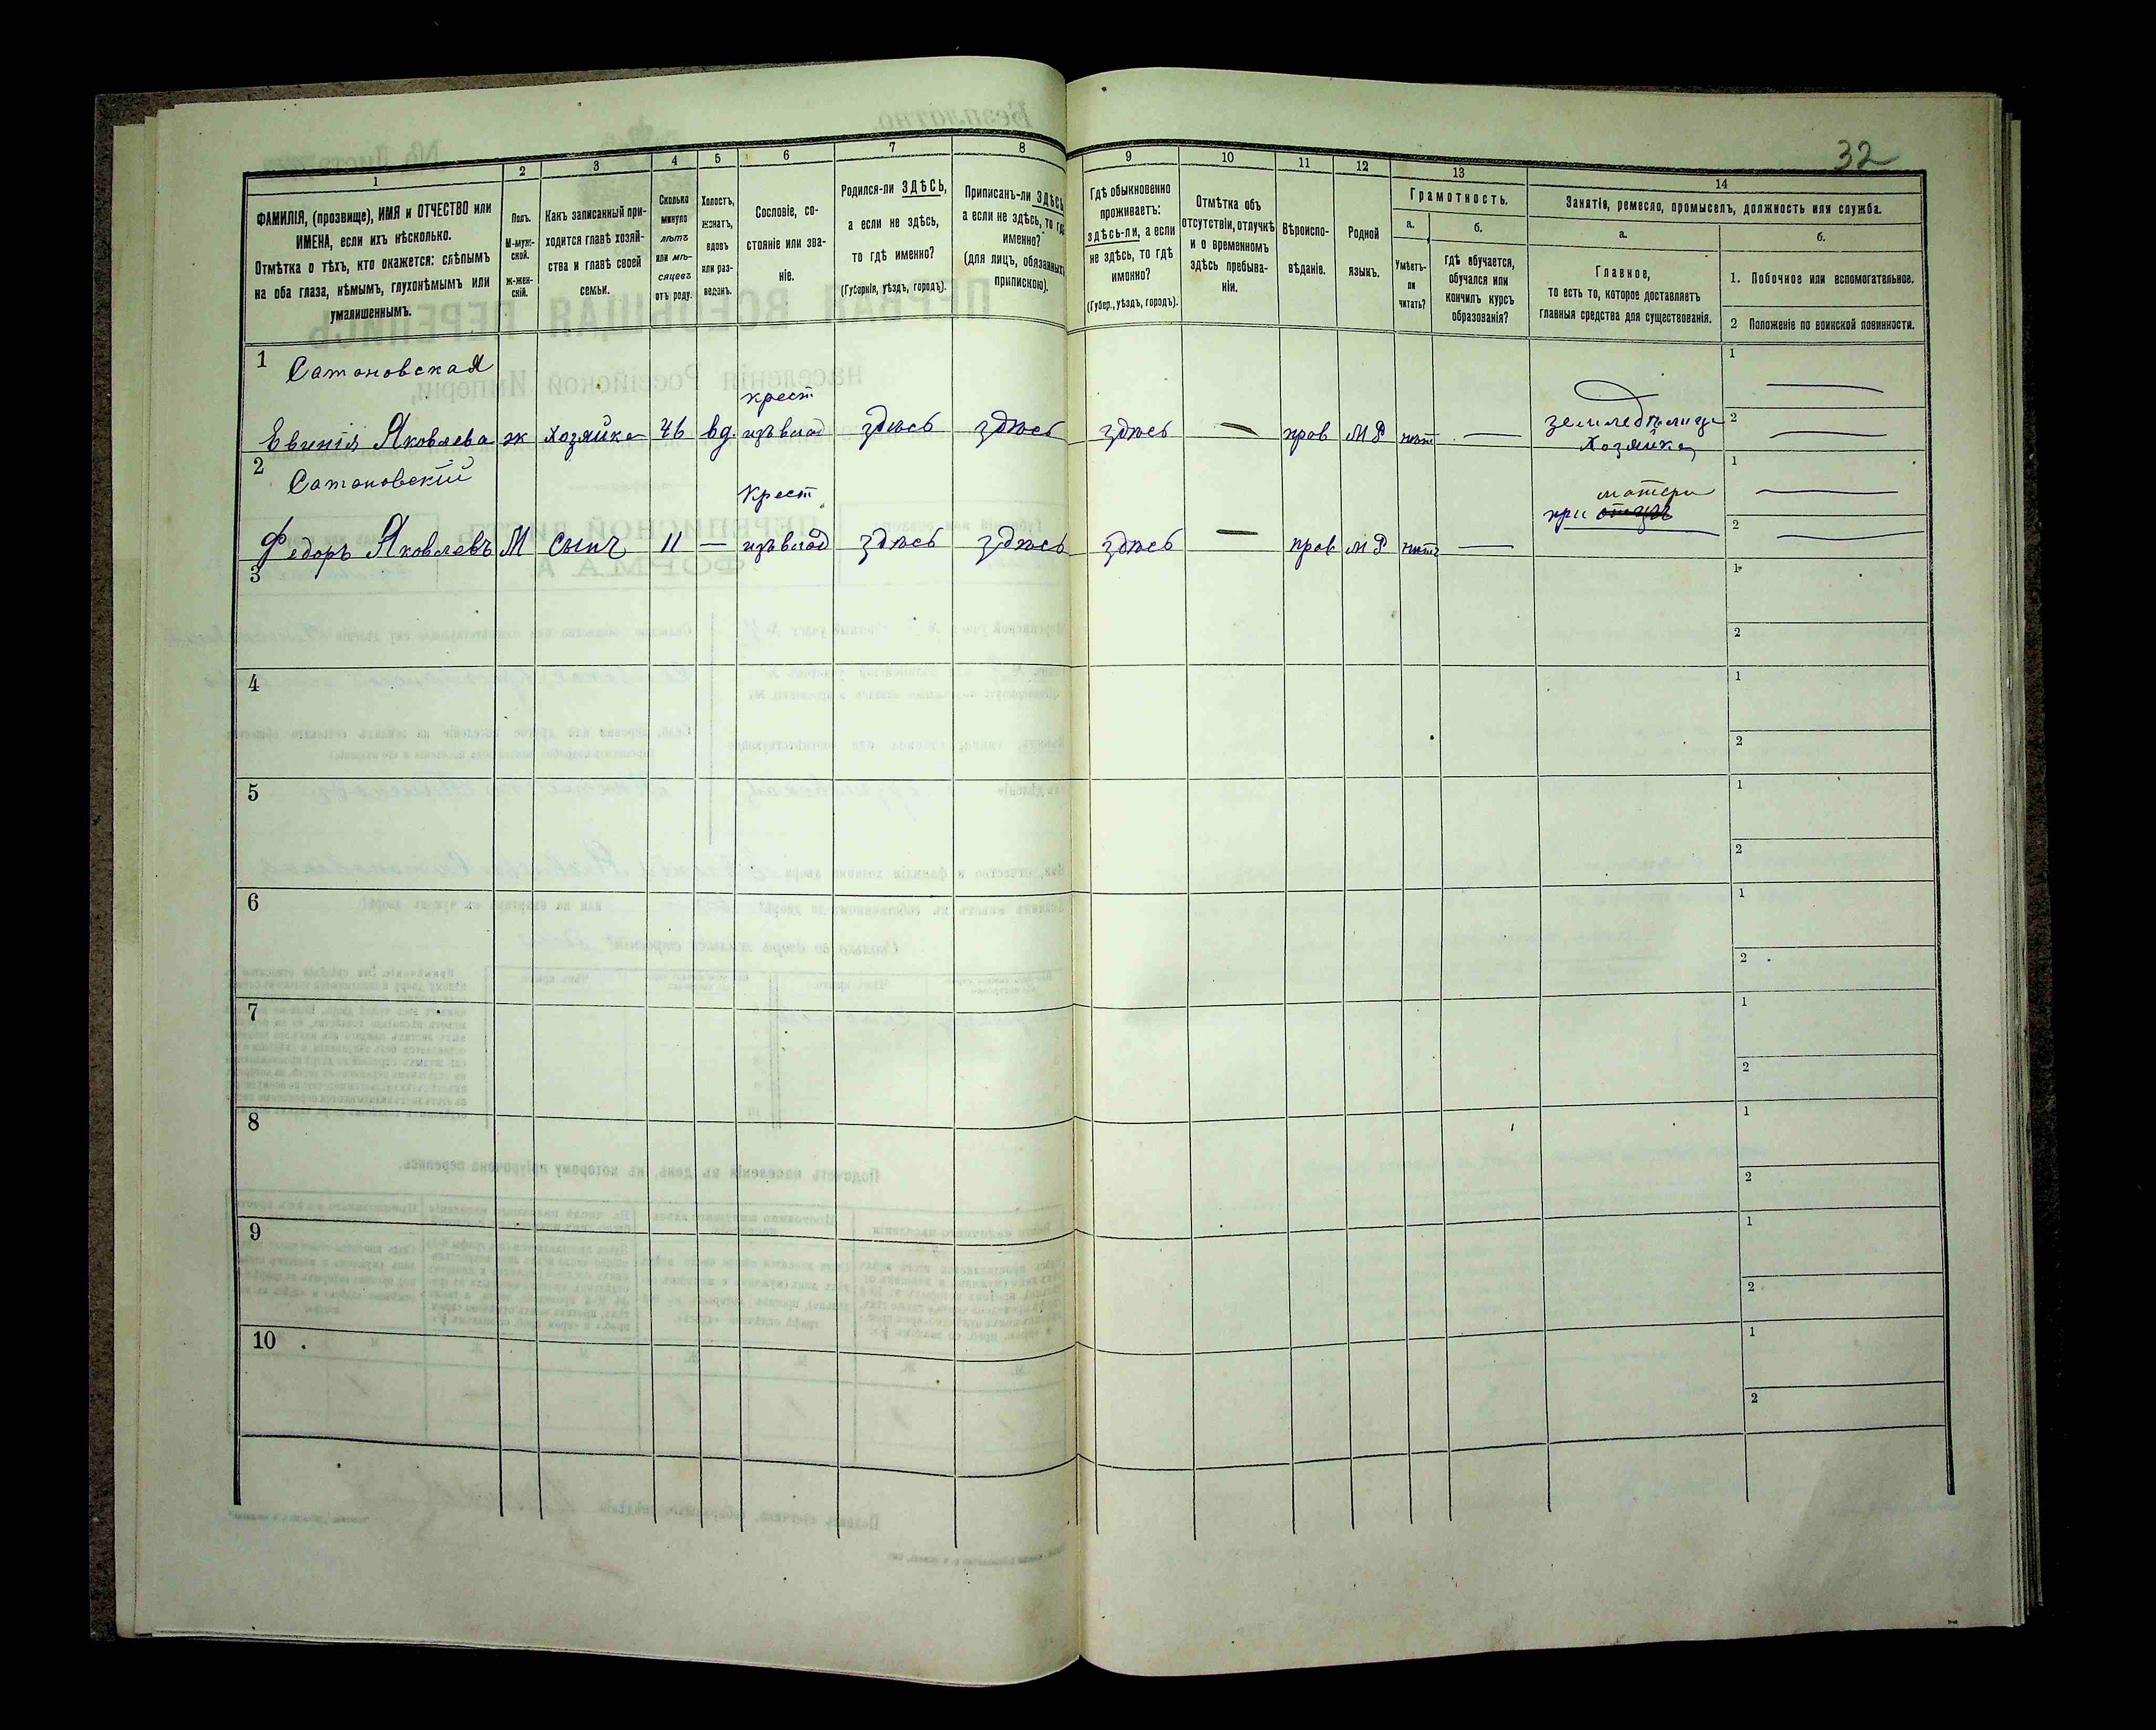 32
1 2 3 4 5 6 7 8 9 10 11 12 13 14
ФАМИЛІЯ, (прозвище), ИМЯ и ОТЧЕСТВО или
ИМЕНА, если ихъ нѣсколько.
Отмѣтка о тѣхъ, кто окажется: слѣпымъ
на оба глаза, нѣмымъ, глухонѣмымъ или
умалишеннымъ.
Полъ.
М-муж-
ской.
Ж-жен-
скій.
Какъ записанный при-
ходится главѣ хозяй-
ства и главѣ своей
семьи.
Сколько
минуло
лѣтъ
или мѣ-
сяцевъ
отъ роду.
Холостъ,
женатъ,
вдовъ
или раз-
веденъ.
Сословіе, со-
стояніе или зва-
ніе.
Родился-ли ЗДѢСЬ,
а если не здѣсь,
то гдѣ именно?
(Губернія, уѣздъ, городъ).
Приписанъ-ли ЗДѢСЬ
а если не здѣсь, то гдѣ
именно?
(для лицъ, обязанныхъ
припискою).
Гдѣ обыкновенно
проживаетъ:
здѣсь-ли, а если
не здѣсь, то гдѣ
именно?
(Губер., уѣздъ, городъ).
Отмѣтка объ
отсутствіи, отлучкѣ
и о временномъ
здѣсь пребыва-
ніи.
Вѣроиспо-
вѣданіе.
Родной
языкъ.
Грамотность.
а.
Умѣетъ-
ли
читать?
б.
гдѣ обучается,
обучался или
кончилъ курсъ
образованія?
Занятія, ремесло, промыселъ, должность или служба.
а.
Главное,
то есть то, которое доставляетъ
главныя средства для существованія.
б.
1. Побочное или вспомогательное.
2 Положеніе по воинской повинности.
1 Сатановская
крест
Евгенія Яковлева ж Хозяйка 46 вд. изъ влад здѣсь здѣсь здѣсь — прав М Р нѣт — земледѣлица
Хозяйка
1 —
2 —
2 Сатановскій
Крест
матери
при отцѣ
Федоръ Яковлевъ М сынъ 11 — изъ влад здѣсь здѣсь здѣсь — прав М Р нѣтъ —
1 —
2 —
3
1
2
4
1
2
5
1
2
6
1
2
7
1
2
8
1
2
9
1
2
10
1
2